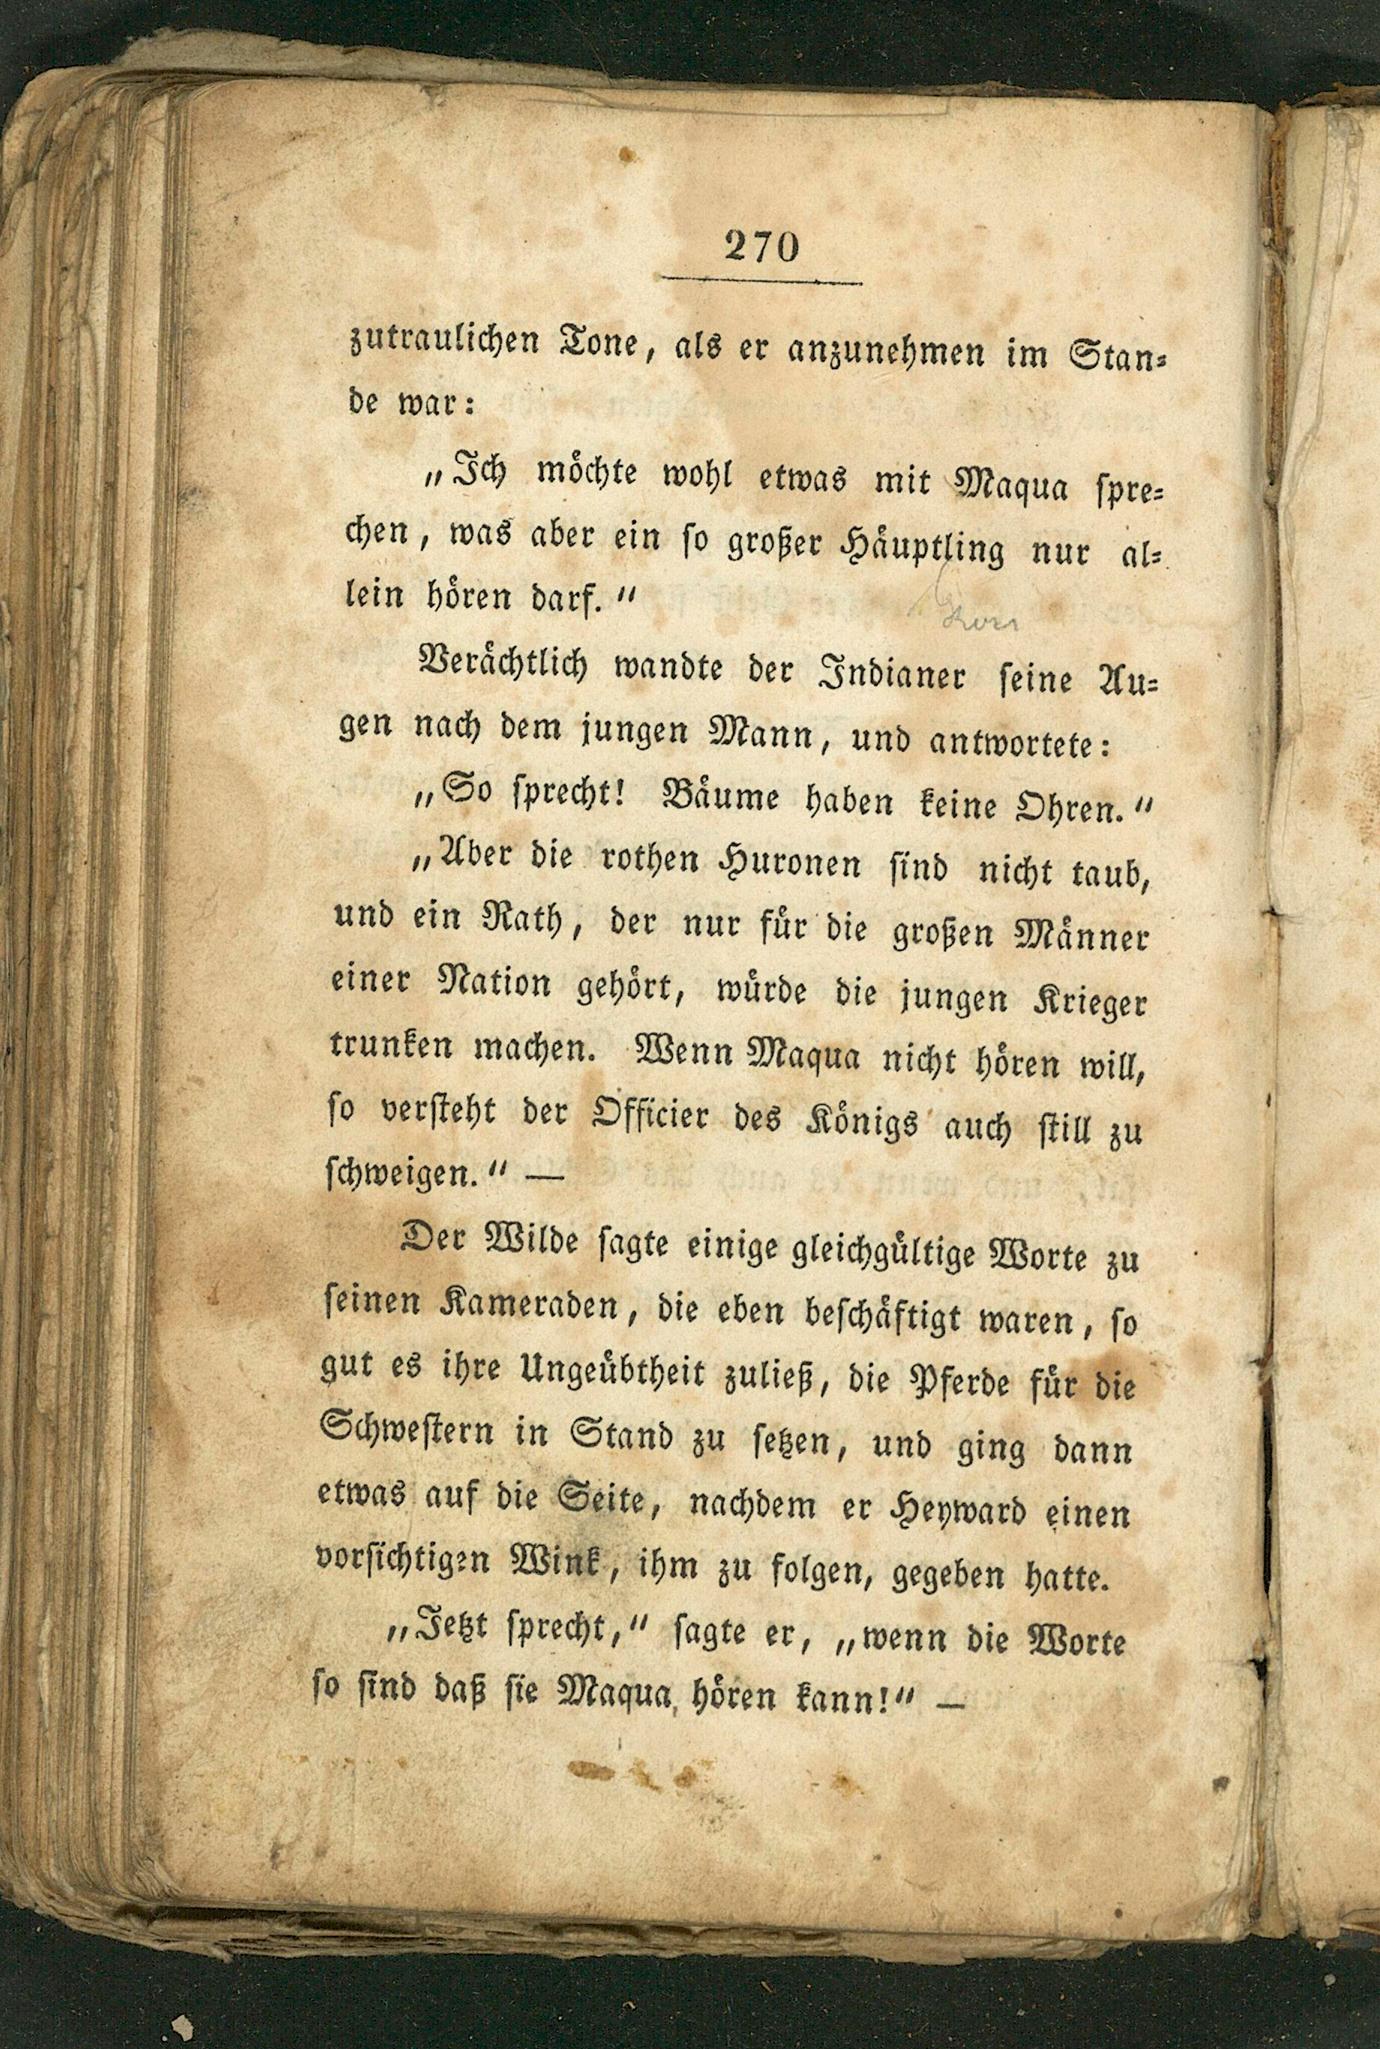 270
zutraulichen Tone, als er anzunehmen im Stan-
de war:
„Ich möchte wohl etwas mit Maqua spre-
chen, was aber ein so großer Häuptling nur al-
lein hören darf.“
Verächtlich wandte der Indianer seine Au-
gen nach dem jungen Mann, und antwortete:
„So sprecht! Bäume haben keine Ohren.“
„Aber die rothen Huronen sind nicht taub,
und ein Rath, der nur für die großen Männer
einer Nation gehört, würde die jungen Krieger
trunken machen. Wenn Maqua nicht hören will,
so versteht der Officier des Königs auch still zu
schweigen.“ —
Der Wilde sagte einige gleichgültige Worte zu
seinen Kameraden, die eben beschäftigt waren, so
gut es ihre Ungeübtheit zuließ, die Pferde für die
Schwestern in Stand zu setzen, und ging dann
etwas auf die Seite, nachdem er Heyward einen
vorsichtigen Wink, ihm zu folgen, gegeben hatte.
„Jetzt sprecht,“ sagte er, „wenn die Worte
so sind daß sie Maqua hören kann!“ —